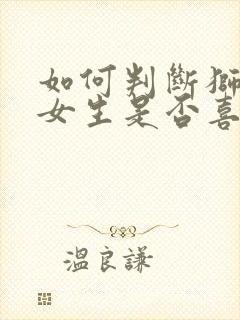 如何判斷獅
女生是否喜
溫良謙